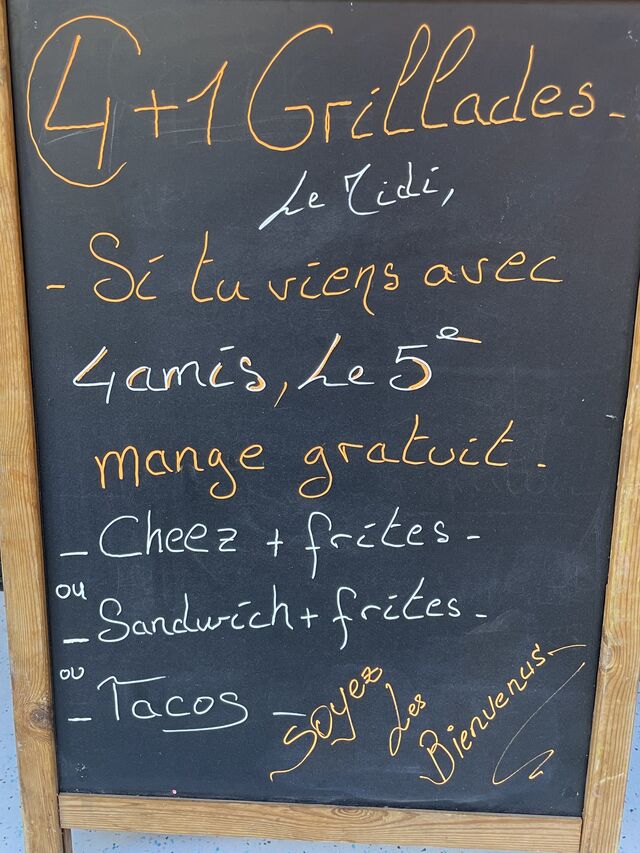 4+1 Grillades.
Le Midi,
- Si tu viens avec
4 amis, Le 5e
mange gratuit.
- Cheez + frites -
ou
- Sandwich + frites -
ou
- Tacos -
Soyez
Les
Bienvenus